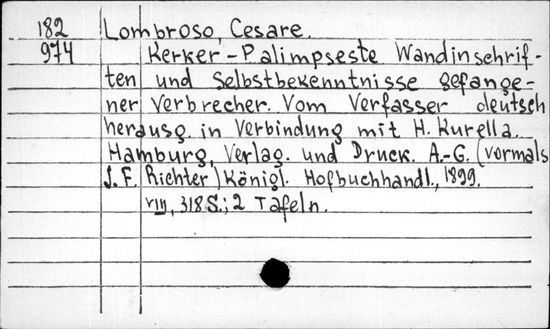 182 Lombroso, Cesare.
974 Kerker-Palimpseste Wandinschrif-
ten und Selbstbekenntnisse gefange-
ner Verbrecher. Vom Verfasser deutsch
herausg. in Verbindung mit H. Kurella.
Hamburg, Verlag. und Druck. A.-G. (vormals
J. F. Richter) Königl. Hofbuchhandl., 1899.
VIII, 318 S.; 2 Tafeln.